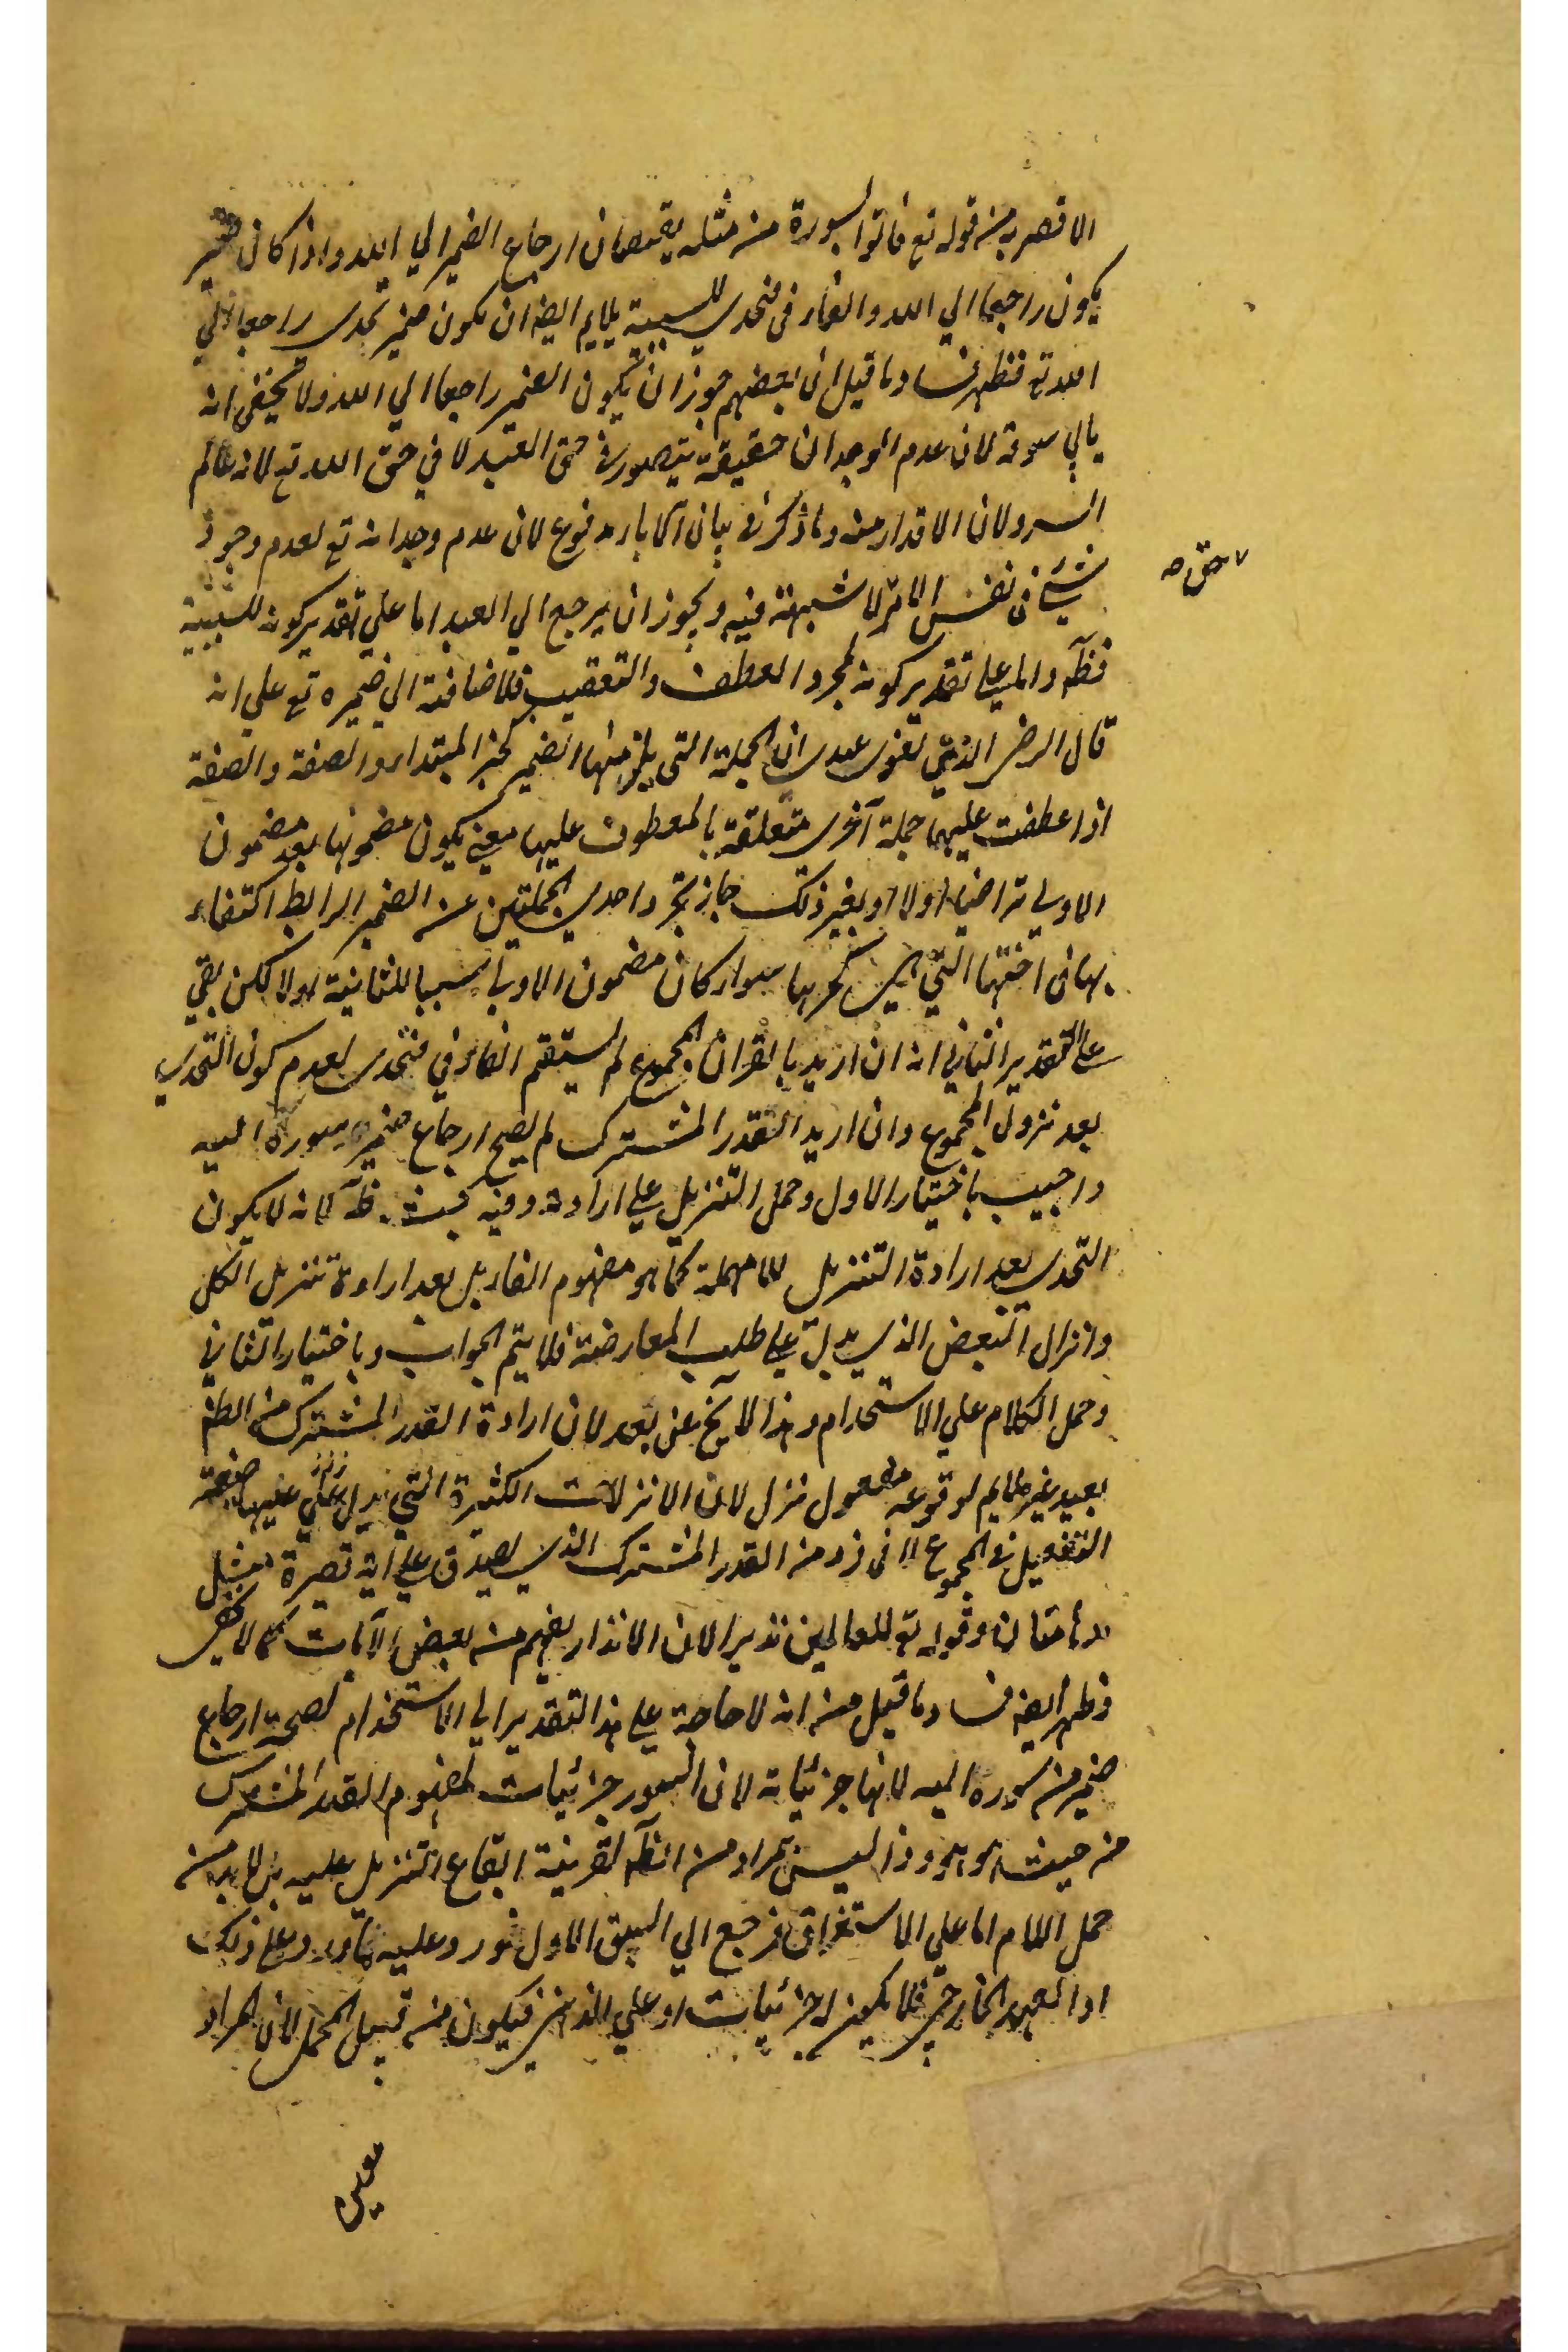 الاقصر به من قوله تع فاتوا بسورة من مثله يقتضيان ارجاع الضمير الي الله واذا كان ضمير
يكون راجعا الي الله والفاء في فتحدي للسببية يلايم ايضا ان يكون ضمير تحدي راجعا الي
الله تع فظهر فساد ما قيل ان بعضهم جوز ان يكون الضمير راجعا الي الله ولا يخفي انه
يابي سوقه لان عدم الوجدان حقيقة يتصور في حق العبد لا في حق الله تع لانه عالم
السر ولان الاقدار منه وما ذكر في بيان الاباء مدفوع لان عدم وجدانه تع لعدم وجود
شئ في نفس الامر لا شبهة فيه ويجوز ان يرجع الي العبد اما علي تقدير كونه للسببية
فظ واما علي تقدير كونه لمجرد العطف والتعقيب فللاضافة الي ضميره تع علي انه
قال الرضي الذي تقوي عندي ان الجملة التي يلزمها الضمير كخبر المبتداء والصفة والصفة
اذا عطفت عليها جملة اخري متعلقة بالمعطوف عليها معني يكون مضمونها بعد مضمون
الاولي متراخيا اولا او بغير ذلك جاز تجرد احدي الجملتين عن الضمير الرابط اكتفاء
بما في اختها التي هي كجزئها سواء كان مضمون الاولي سببا للثانية اولا لكن بقي
علي التقدير الثاني انه ان اريد بالقران المجموع لم يستقم الفاء في فتحدي لعدم كون التحدي
بعد نزول المجموع وان اريد القدر المشترك لم يصح ارجاع ضمير سوره اليه
واجيب باختيار الاول وحمل التنزيل علي ارادته وفيه بحث ظ لانه لا يكون
التحدي بعد ارادة التنزيل بلا مهلة كما هو مفهوم الفاء بل بعد ارادة تنزيل الكل
وانزال البعض الذي يدل علي طلب المعارضة فلا يتم الجواب وباختيار الثاني
وحمل الكلام علي الاستخدام وهذا لا يخ عن بعد لان ارادة القدر المشترك من الظ
بعيد غير ملايم لوقوعه مفعول نزل لان الانزالات الكثيرة التي يدل عليها صيغة
التفعيل في المجموع لا في فرد من القدر المشترك الذي يصدق علي اية قصيرة مثل
مدهامتان وقوله تع للعالمين نذيرا لان الانذار يفهم من بعض الايات كما لا يخفي
فظهر ايضا فساد ما قيل من انه لا حاجة علي هذا التقدير الي الاستخدام لصحة ارجاع
ضمير من سوره اليه لانها جزئياته لان السور جزئيات لمفهوم القدر المشترك
من حيث هو هو وذا ليس بمراد من الظ لقرينة ايقاع التنزيل عليه بل لابد من
حمل اللام اما علي الاستغراق فرجع الي الشق الاول فورد عليه ما ورد وعلي ذلك
او العهد الخارجي فلا يكون له جزئيات او علي الذهني فيكون من قبيل المجمل لان المراد